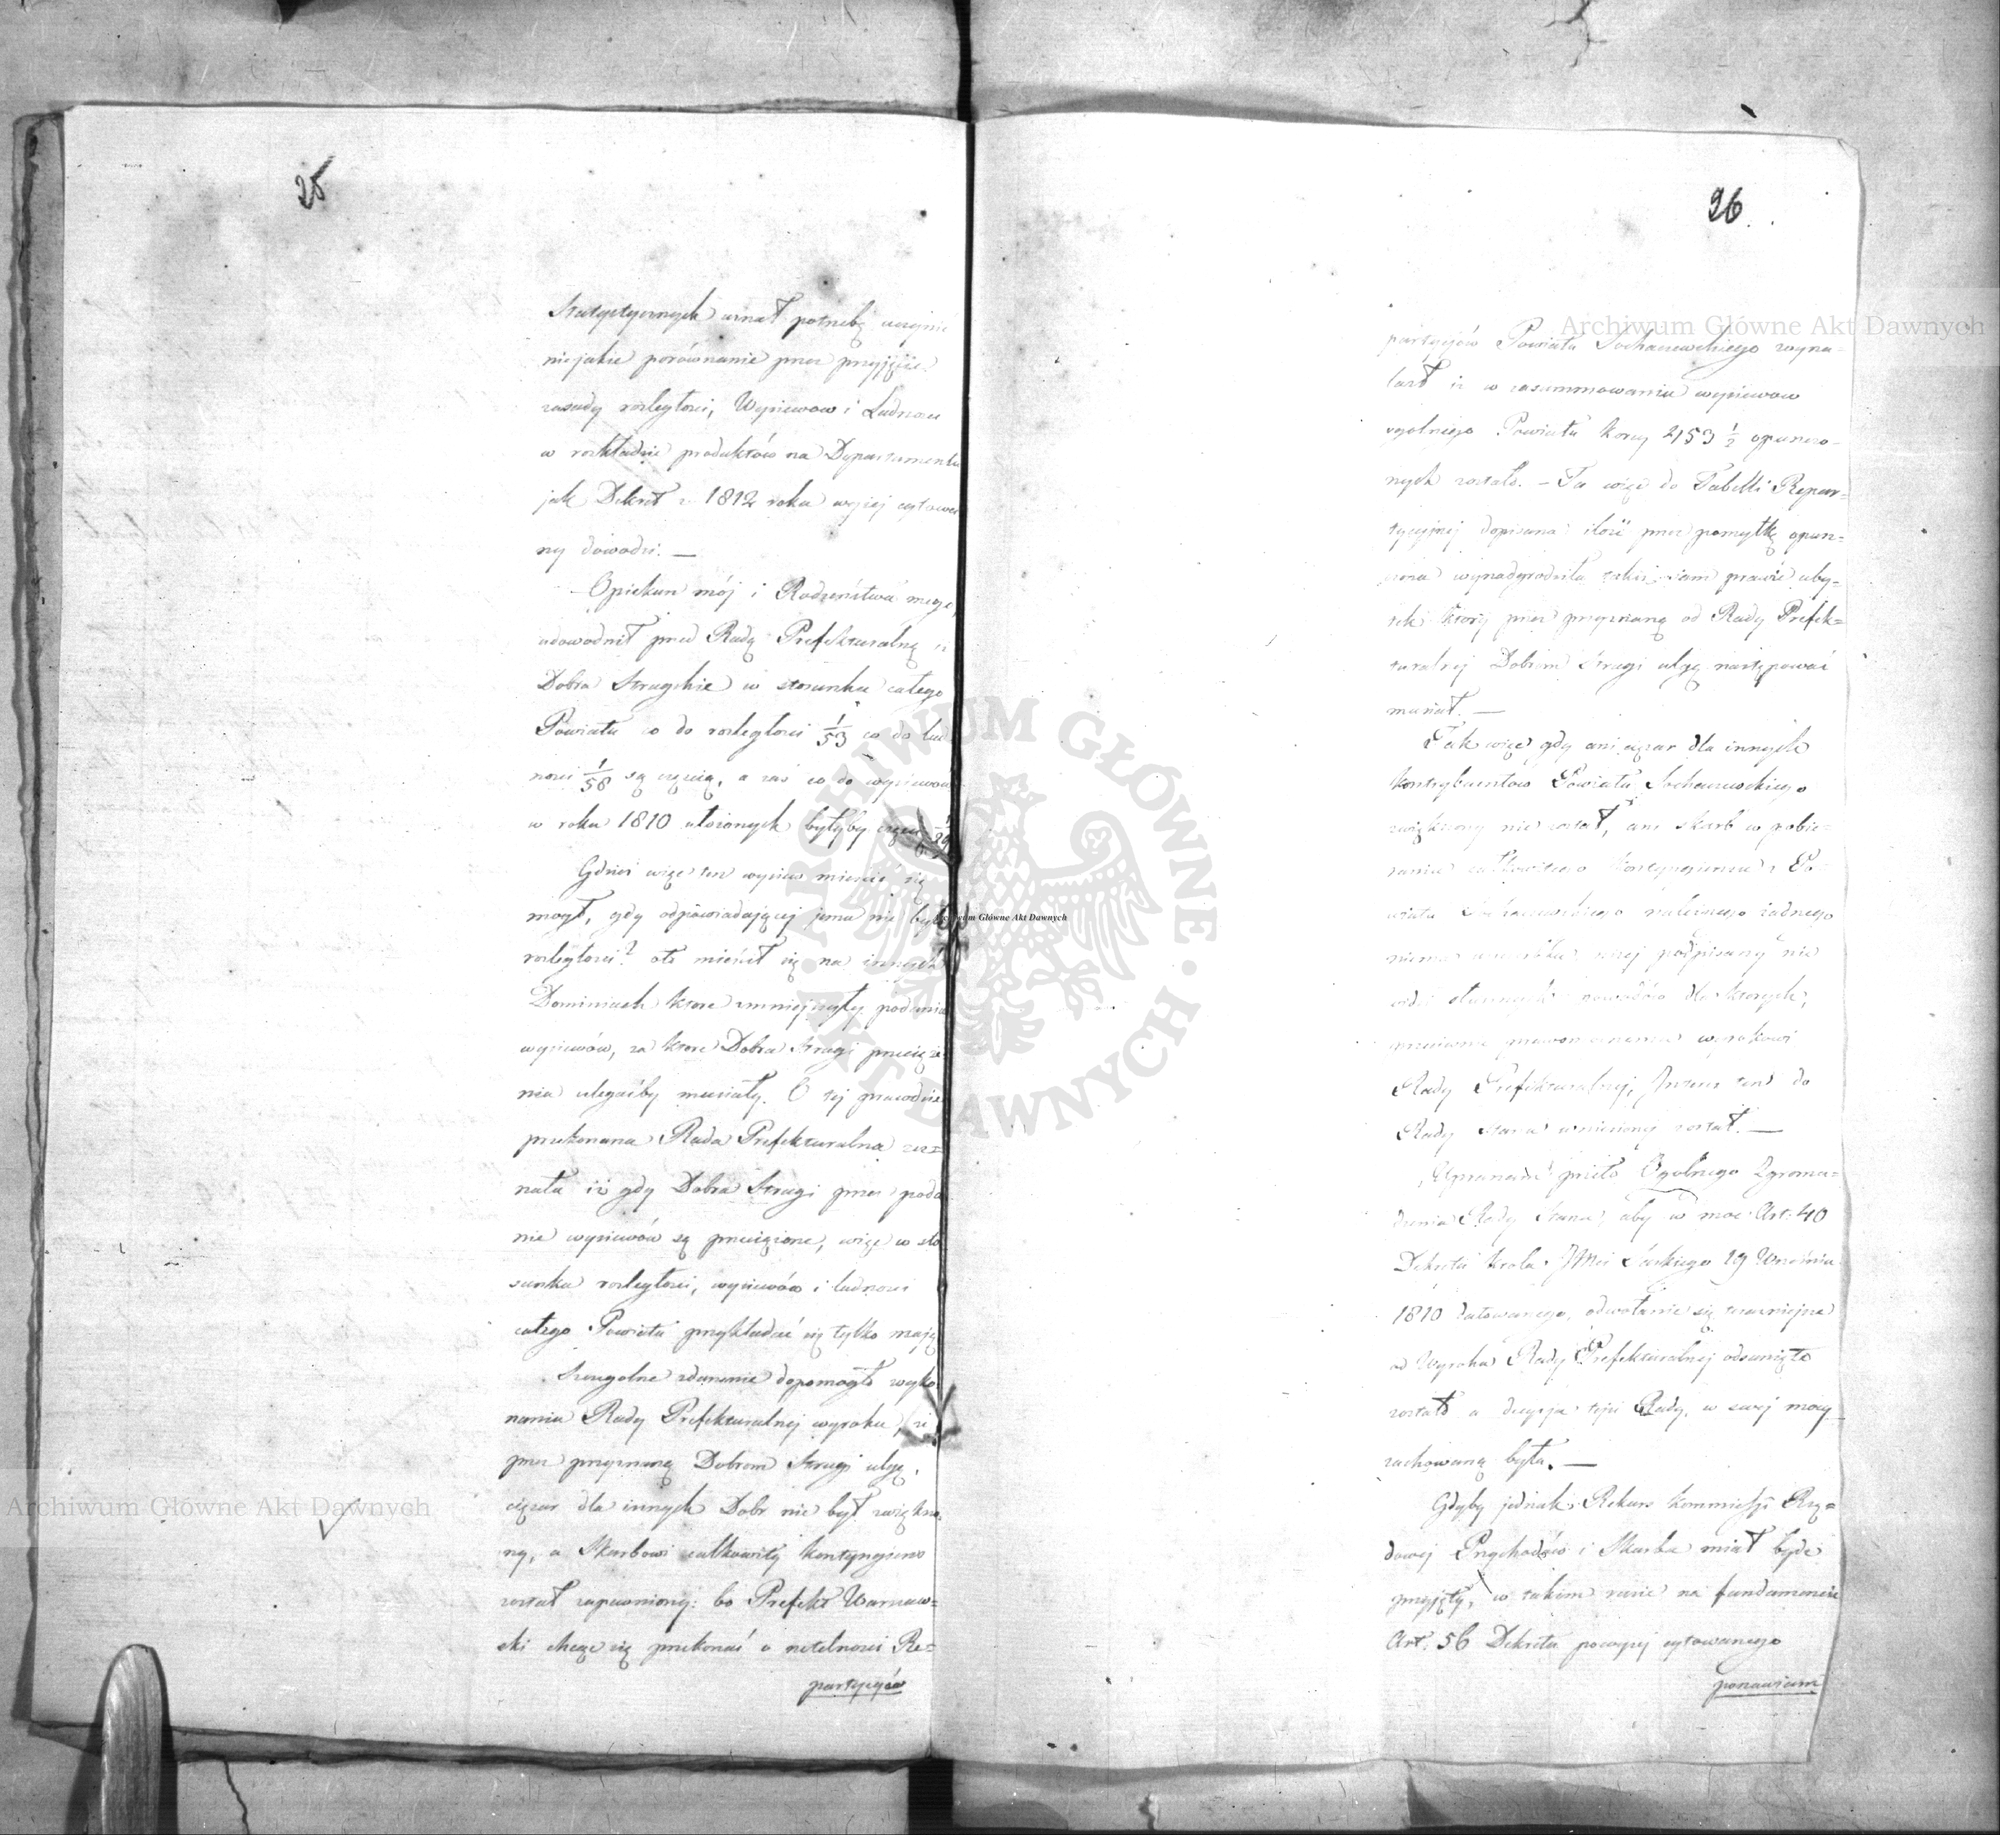 25
Statystycznych uznał potrzebę uczynić
niejakie porównanie przez przyjęcie
zasady rozległości, Wysiewow i Ludnosci
w rozkładzie produktów na Departamenta
jak Dekret z 1812 roku wyżej cytowa
ny dowodzi. —
Opiekun mój i Rodzeństwa mego,
udowodnił przed Radą Prefekturalną iż
Dobra Strugskie w stosunku całego
Powiatu co do rozległosci 1/53 co do lud
nosci 1/58 są częscią, a zas co do wysiewow
w roku 1810 ułożonych byłyby częscią 1/29
Gdzież więc ten wysiew miescić się
mógł, gdy odpowiadającej jemu nie było
rozległosci? oto mieścił się na innych
Dominiach ktore zmniejszyły podania
wysiewów, za ktore Dobra Strugi przeciąże
nia ulegaćby musiały. O tej prawdzie
przekonana Rada Prefekturalna uz=
nała iż gdy Dobra Strugi przez poda
nie wysiewów są przeciążone, więc w sto
sunku rozległosci, wysiewów i ludnosci
całego Powiatu przykładać się tylko mają
Szczegolne zdarzenie dopomogło wyko
nania Rady Prefekturalnej wyroku, że
przez przyznaną Dobrom Strugi ulgę,
ciężar dla innych Dobr nie był zwiększo
ny, a Skarbowi całkowity kontyngens
został zapewniony: bo Prefekt Warszaw=
ski chcąc się przekonać o rzetelnosci Re=
partycyów
26
partycyów Powiatu Sochaczewskiego wyna=
lazł iż w zasummowaniu wysiewow
ogolnego Powiatu korcy 2153 1/2 opuszczo=
nych zostało. — Ta więc do Tabelli Repar=
tycyjnej dopisana ilość przez pomyłkę opusz=
czona wynadgrodziła takiż sam prawie uby=
tek ktory przez przyznaną od Rady Prefek=
turalnej Dobrom Strugi ulgę następować
musiał. —
Tak więc gdy ani ciężar dla innych
kontrybuentow Powiatu Sochaczewskiego
zwiększony nie został, ani skarb w pobie=
raniu całkowitego kontyngensu z Po
wiatu Sochaczewskiego należnego żadnego
niema uszczerbku niżej podpisany nie
widzi słusznych powodów dla ktorych,
przeciwko prawomocnemu wyrokowi
Rady Prefekturalnej, Interes ten do
Rady Stanu wniesiony został. —
Upraszam przeto Ogolnego Zgroma=
dzenia Rady Stanu, aby w moc Art: 40
Dekretu Krola JMci Saskiego 19 Września
1810 datowanego, odwołanie się teraźniejsze
od Wyroku Rady Prefekturalnej odsunięte
zostało a decyzja tejże Rady, w swej mocy
zachowaną była. —
Gdyby jednak Rekurs Kommissyi Rzą=
dowej Przychodów i Skarbu miał bydź
przyjęty, w takim razie na fundamencie
Art: 56 Dekretu powyżej cytowanego
ponawiam
Archiwum Główne Akt Dawnych
Archiwum Główne Akt Dawnych
Archiwum Główne Akt Dawnych
ARCHIWUM GŁÓWNE · AKT DAWNYCH ·